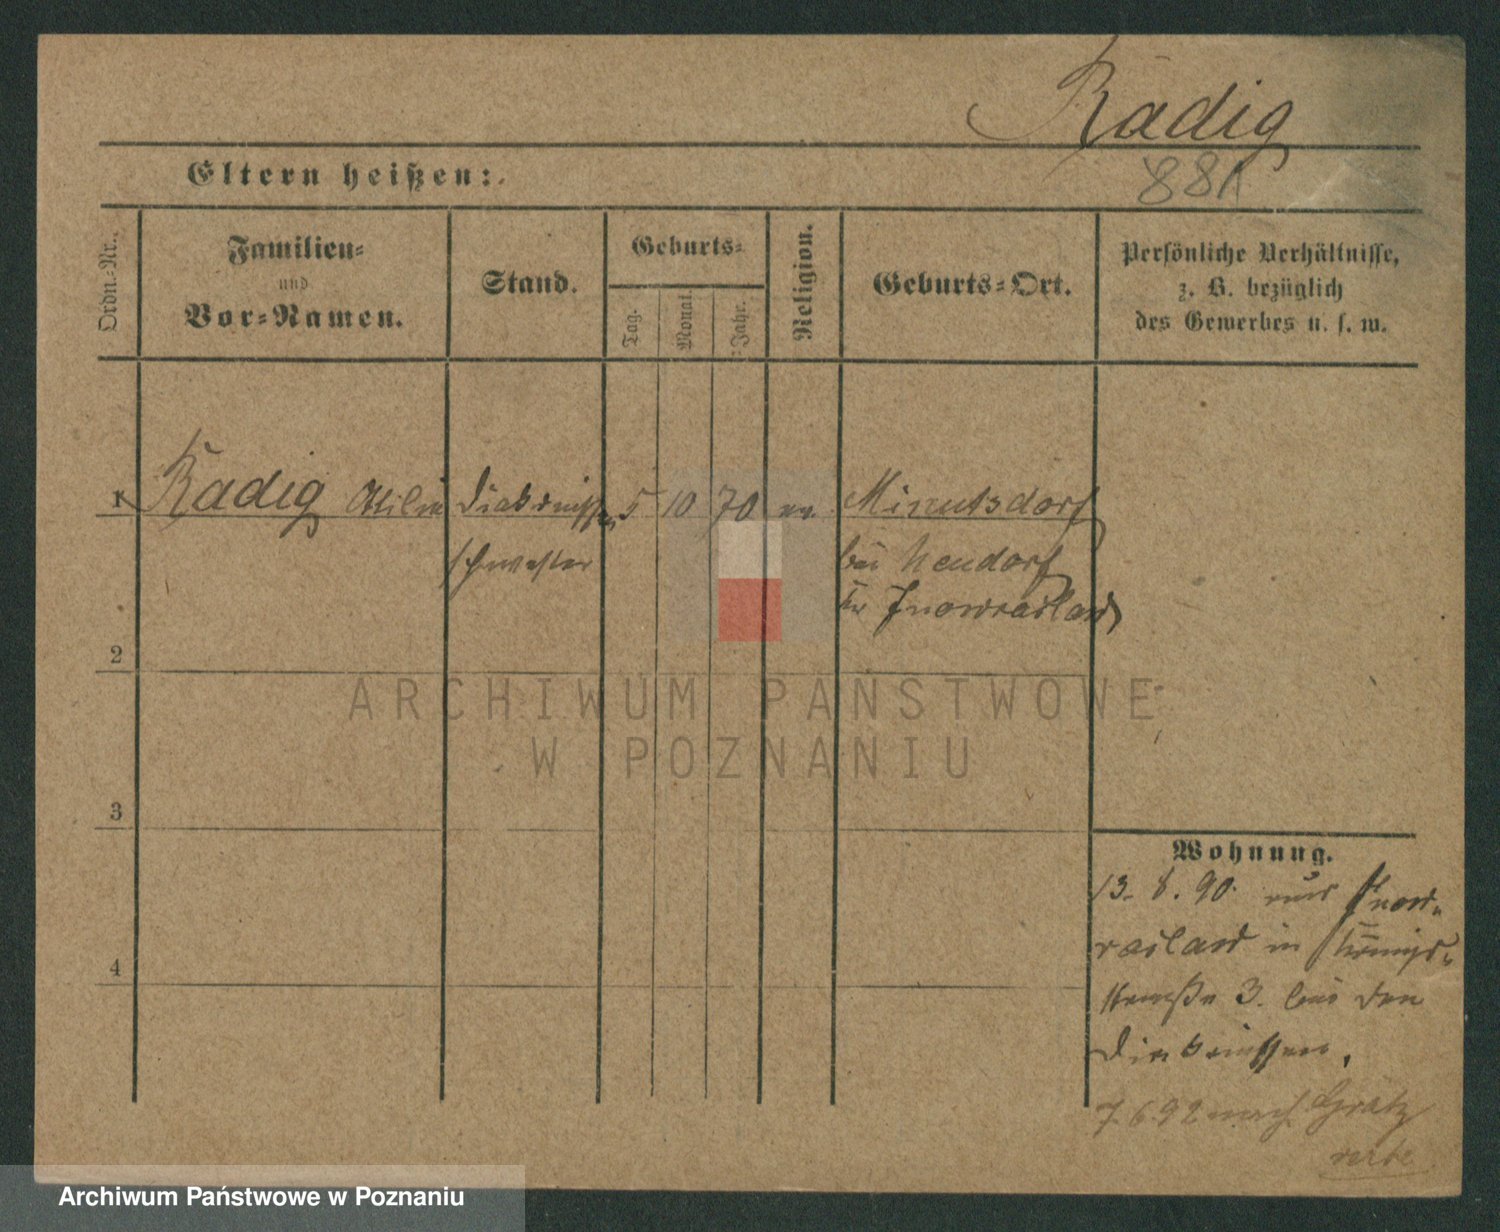 Radig
881
Eltern heißen:
Ordn.-Nr.
Familien-
und
Vor-Namen.
Stand.
Geburts-
Tag.
Monat.
Jahr.
Religion.
Geburts-Ort.
Persönliche Verhältnisse,
z. B. bezüglich
des Gewerbes u. s. w.
1 Radig Ottilie Diakonissen 5 10 70 ev. Minutsdorf
schwester bei Neudorf
Kr Inowrazlaw
2
ARCHIWUM PAŃSTWOWE
W POZNANIU
3
Wohnung.
13. 8. 90. aus Inow-
razlaw in Königs-
straße 3. bei den
Diakonissen.
4
7.6.92 nach Grätz
Archiwum Państwowe w Poznaniu